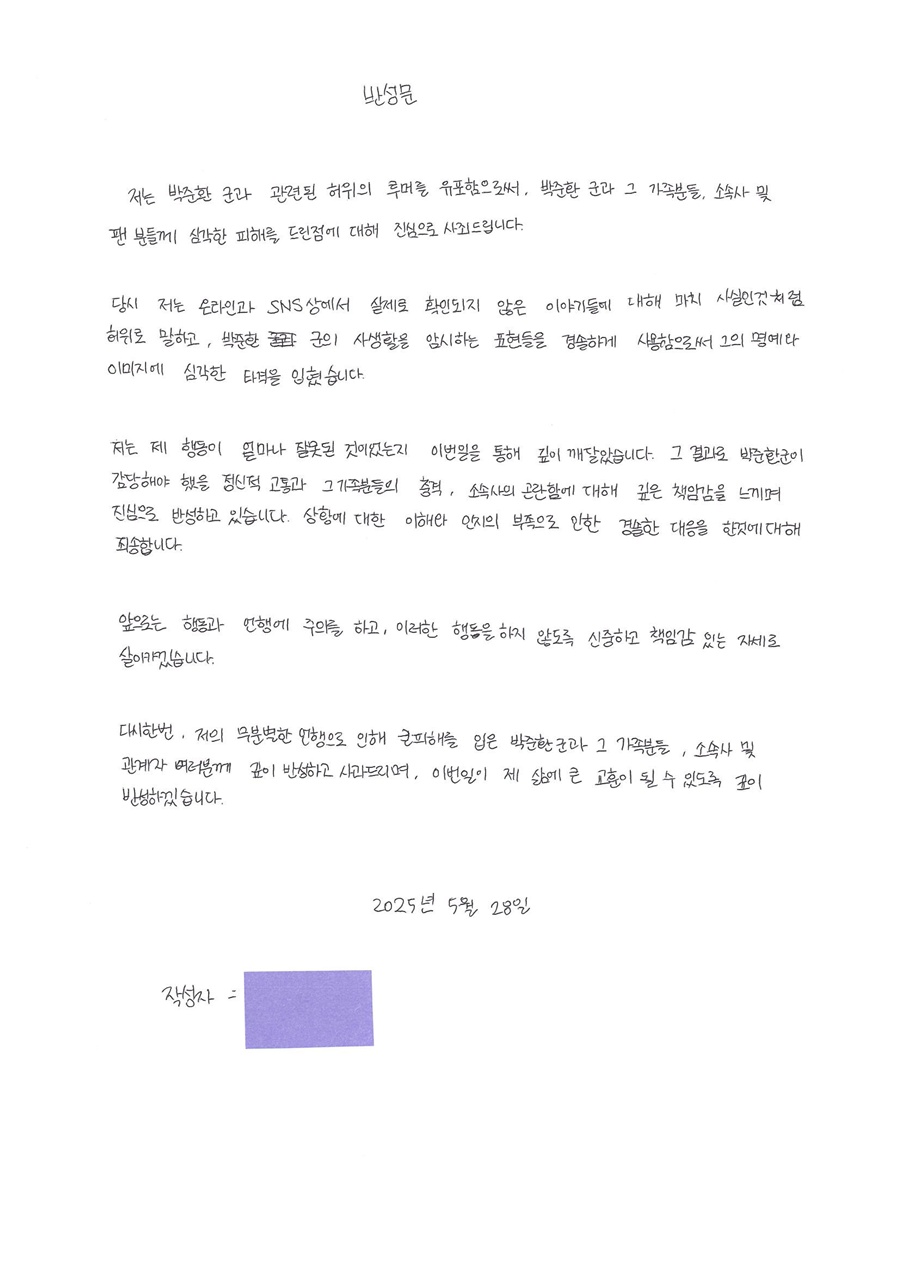 반성문
저는 박준환 군과 관련된 허위의 루머를 유포함으로써, 박준환 군과 그 가족분들, 소속사 및
팬 분들께 심각한 피해를 드린점에 대해 진심으로 사죄드립니다.
당시 저는 온라인과 SNS상에서 실제로 확인되지 않은 이야기들에 대해 마치 사실인것처럼
허위로 말하고, 박준환 군의 사생활을 암시하는 표현들을 경솔하게 사용함으로써 그의 명예와
이미지에 심각한 타격을 입혔습니다.
저는 제 행동이 얼마나 잘못된 것이었는지 이번일을 통해 깊이 깨달았습니다. 그 결과로 박준환군이
감당해야 했을 정신적 고통과 그가족분들의 충격, 소속사의 곤란함에 대해 깊은 책임감을 느끼며
진심으로 반성하고 있습니다. 상황에 대한 이해와 인지의 부족으로 인한 경솔한 대응을 한것에대해
죄송합니다.
앞으로는 행동과 언행에 주의를 하고, 이러한 행동을 하지 않도록 신중하고 책임감 있는 자세로
살아가겠습니다.
다시한번, 저의 무분별한 언행으로 인해 큰피해를 입은 박준환군과 그 가족분들, 소속사 및
관계자 여러분께 깊이 반성하고 사과드리며, 이번일이 제 삶에 큰 교훈이 될 수 있도록 깊이
반성하겠습니다.
2025년 5월 28일
작성자 =